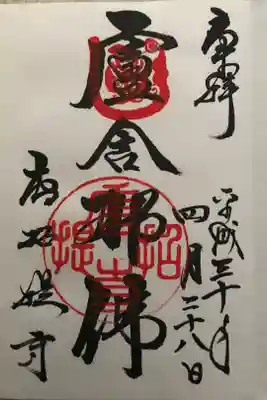 奉拝
平成三十年
四月二十八日
盧舎那佛
唐招提寺
唐招提寺